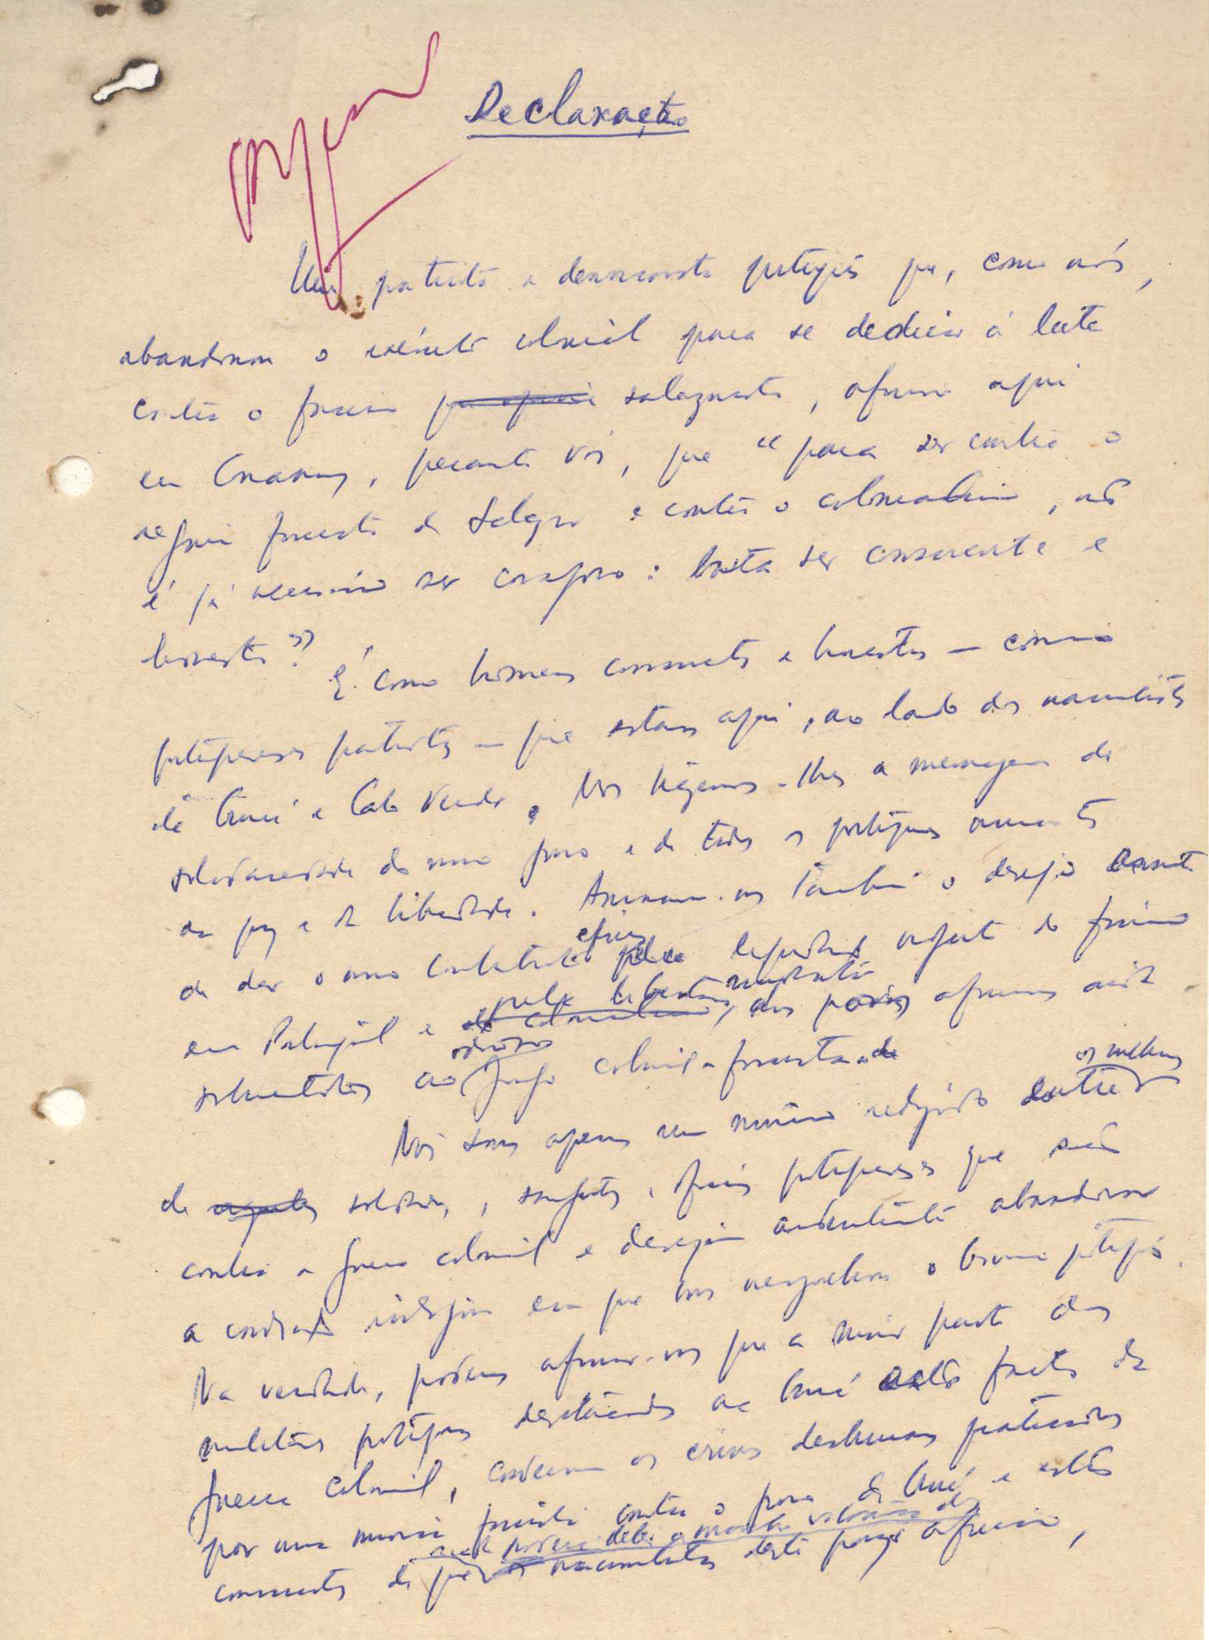 Declaração
Um patriota e democrata português que, como nós,
abandonou o exército colonial para se dedicar à luta
contra o fascismo salazarista, afirmou aqui
em Conakry, perante vós, que "para ser contra o
regime fascista de Salazar e contra o colonialismo, não
é já necessário ser corajoso: basta ser consciente e
honesto"
É como homens conscientes e honestos — como
portugueses patriotas — que estamos aqui, ao lado dos nacionalistas
da Guiné e Cabo Verde. Nós trazemos-lhes a mensagem de
solidariedade do nosso povo e de todos os portugueses amantes
da paz e da liberdade. Anima-nos também o desejo
de dar o nosso contributo eficaz pela liquidação urgente do fascismo
em Portugal e pela libertação imediata dos povos africanos ainda
submetidos ao odioso jugo colonial-fascista
Nós somos apenas um número reduzido entre os milhares
de soldados, sargentos e oficiais portugueses que são
contra a guerra colonial e desejam ardentemente abandonar
a condição indigna em que nos mergulhou o Governo português.
Na verdade, podemos afirmar-vos que a maior parte dos
militares portugueses destacados na Guiné estão fartos da
guerra colonial, condenam os crimes desumanos praticados
por uma minoria fascista contra o povo da Guiné e estão
conscientes de que nada poderá deter a marcha vitoriosa dos
nacionalistas deste país africano,